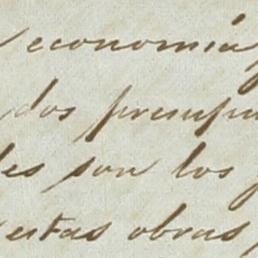 economía
dos presupu
les son los
estas obras